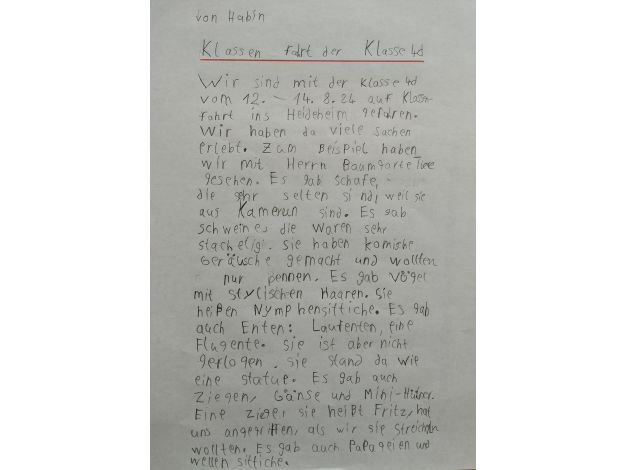 von Habin
Klassen fahrt der Klasse 4d
Wir sind mit der Klasse 4d
vom 12. – 14. 8. 24 auf Klassn-
fahrt ins Heideheim gefaren.
Wir haben da viele sachen
erlebt. Zum Beispiel haben
wir mit Herrn Baumgarte Tiere
gesehen. Es gab Schafe,
die sehr selten sind, weil sie
aus Kamerun sind. Es gab
schweine, die waren sehr
stachelig. sie haben komishe
Geräusche gemacht und wollten
nur pennen. Es gab Vögel
mit stylischen Haaren. Sie
heißen Nymphensittiche. Es gab
auch Enten: Laufenten, eine
Flugente. sie ist aber nicht
geflogen. sie stand da wie
eine statue. Es gab auch
Ziegen, Gänse und Mini-Hühner.
Eine Ziege, sie heißt Fritz, hat
uns angegriffen, als wir sie streicheln
wollten. Es gab auch Papageien und
wellen sittiche.